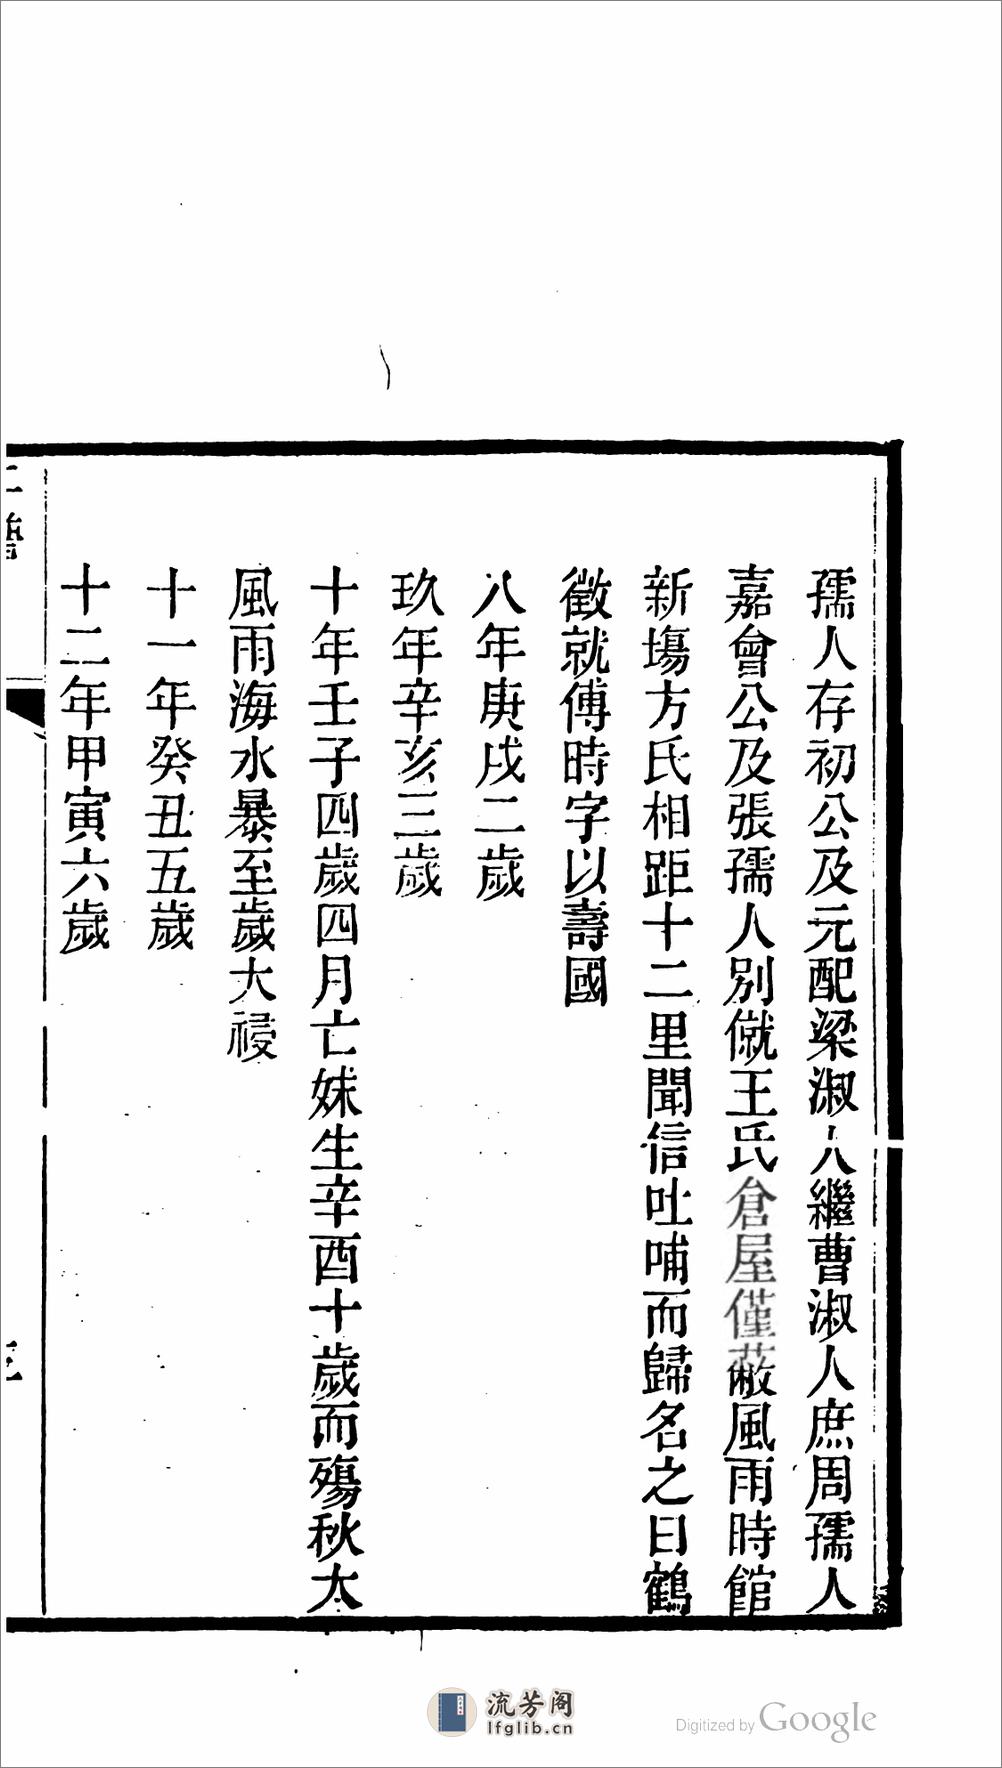 孺人存初公及元配梁淑人繼曹淑人庶周孺人
嘉會公及張孺人別僦王氏倉屋僅蔽風雨時館
新塲方氏相距十二里聞信吐哺而歸名之曰鶴
徵就傅時字以壽國
八年庚戌二歲
玖年辛亥三歲
十年壬子四歲四月亡妹生辛酉十歲而殤秋大
風雨海水暴至歲大祲
十一年癸丑五歲
十二年甲寅六歲
流芳阁
lfglib.cn
Digitized by Google